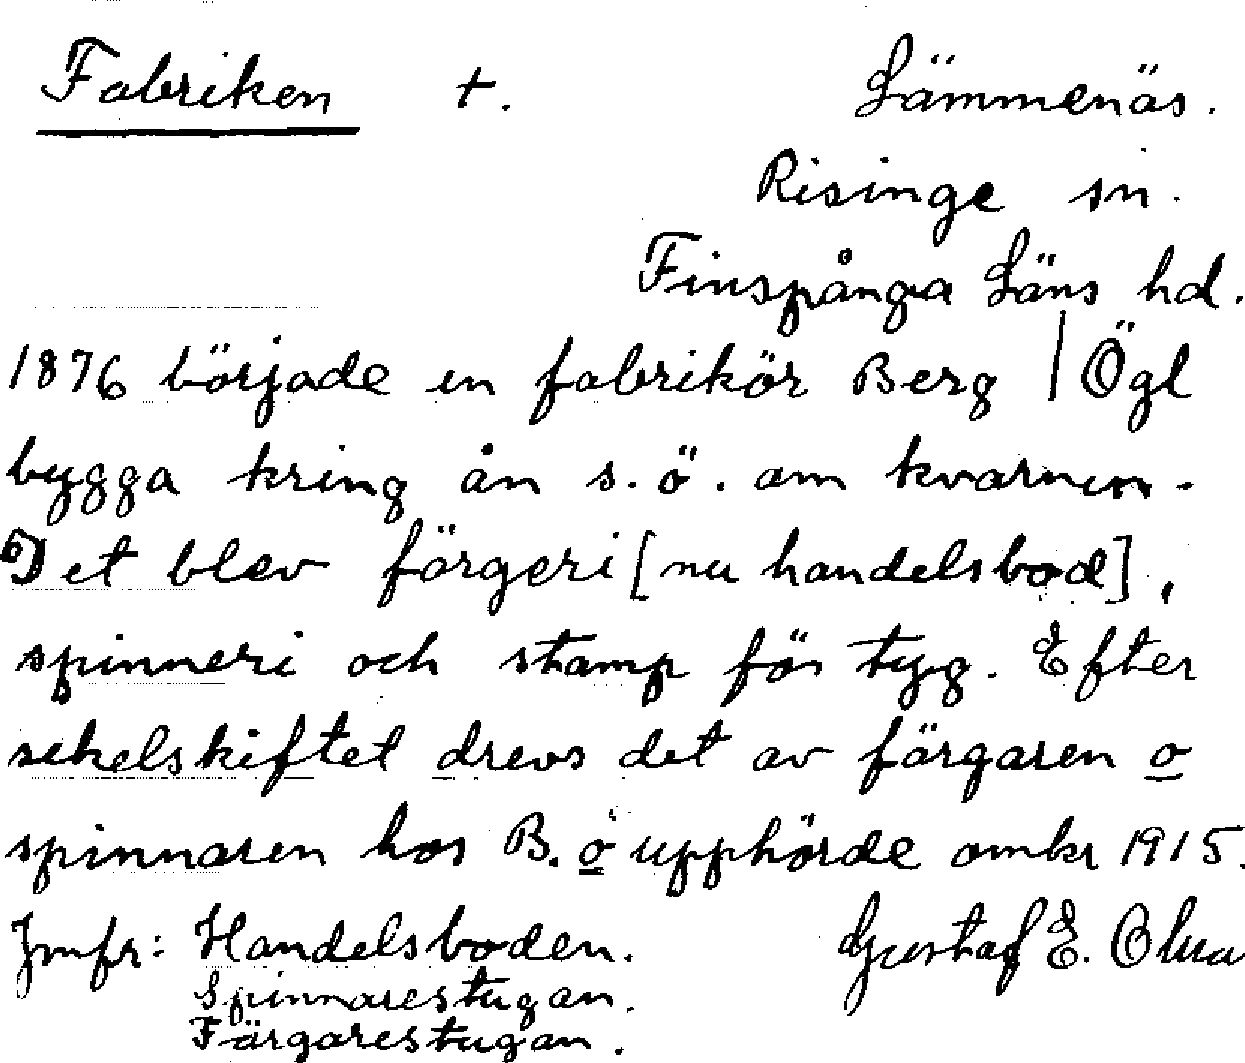 Fabriken +. Lämmenäs.
Risinge sn.
Finspånga Läns hd.
1876 började en fabrikör Berg | Ögl
bygga kring ån s.ö. om kvarnen.
Det blev färgeri [nu handelsbod],
spinneri och stamp för tyg. Efter
sekelskiftet drevs det av färgaren o
spinnaren hos B. o upphörde omkr 1915.
Jmfr: Handelsboden. Gustaf E.
Spinnarestugan.
Färgarestugan.